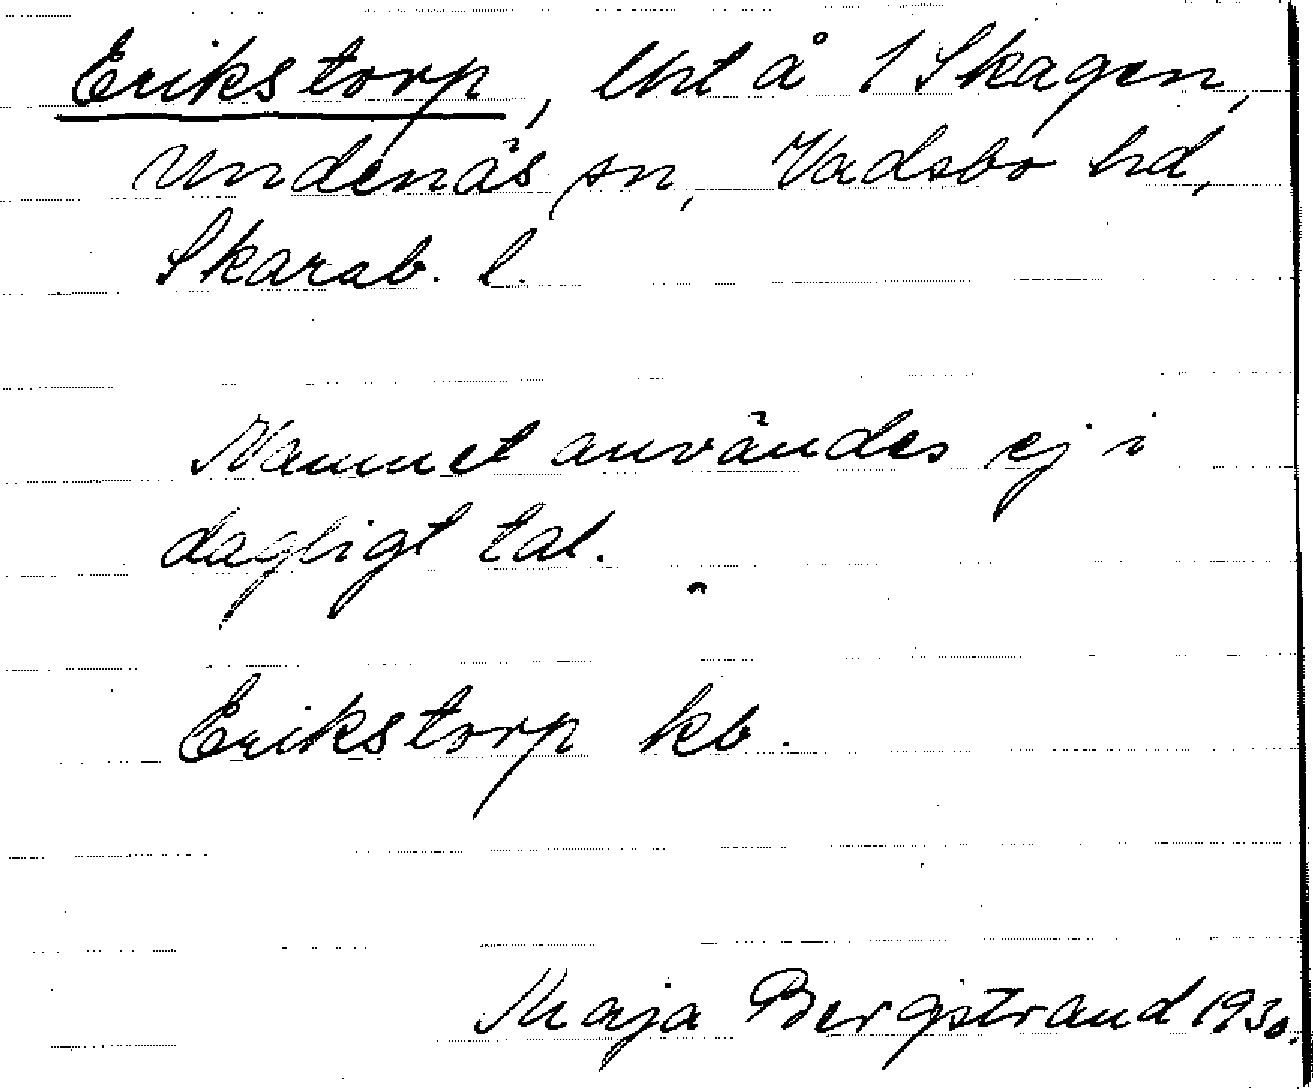 Erikstorp, lht å 1 Skagen,
Undenäs sn, Vadsbo hd,
Skarab. l.
Namnet användes ej i
dagligt tal.
Erikstorp kb.
Maja Bergstrand 1930.